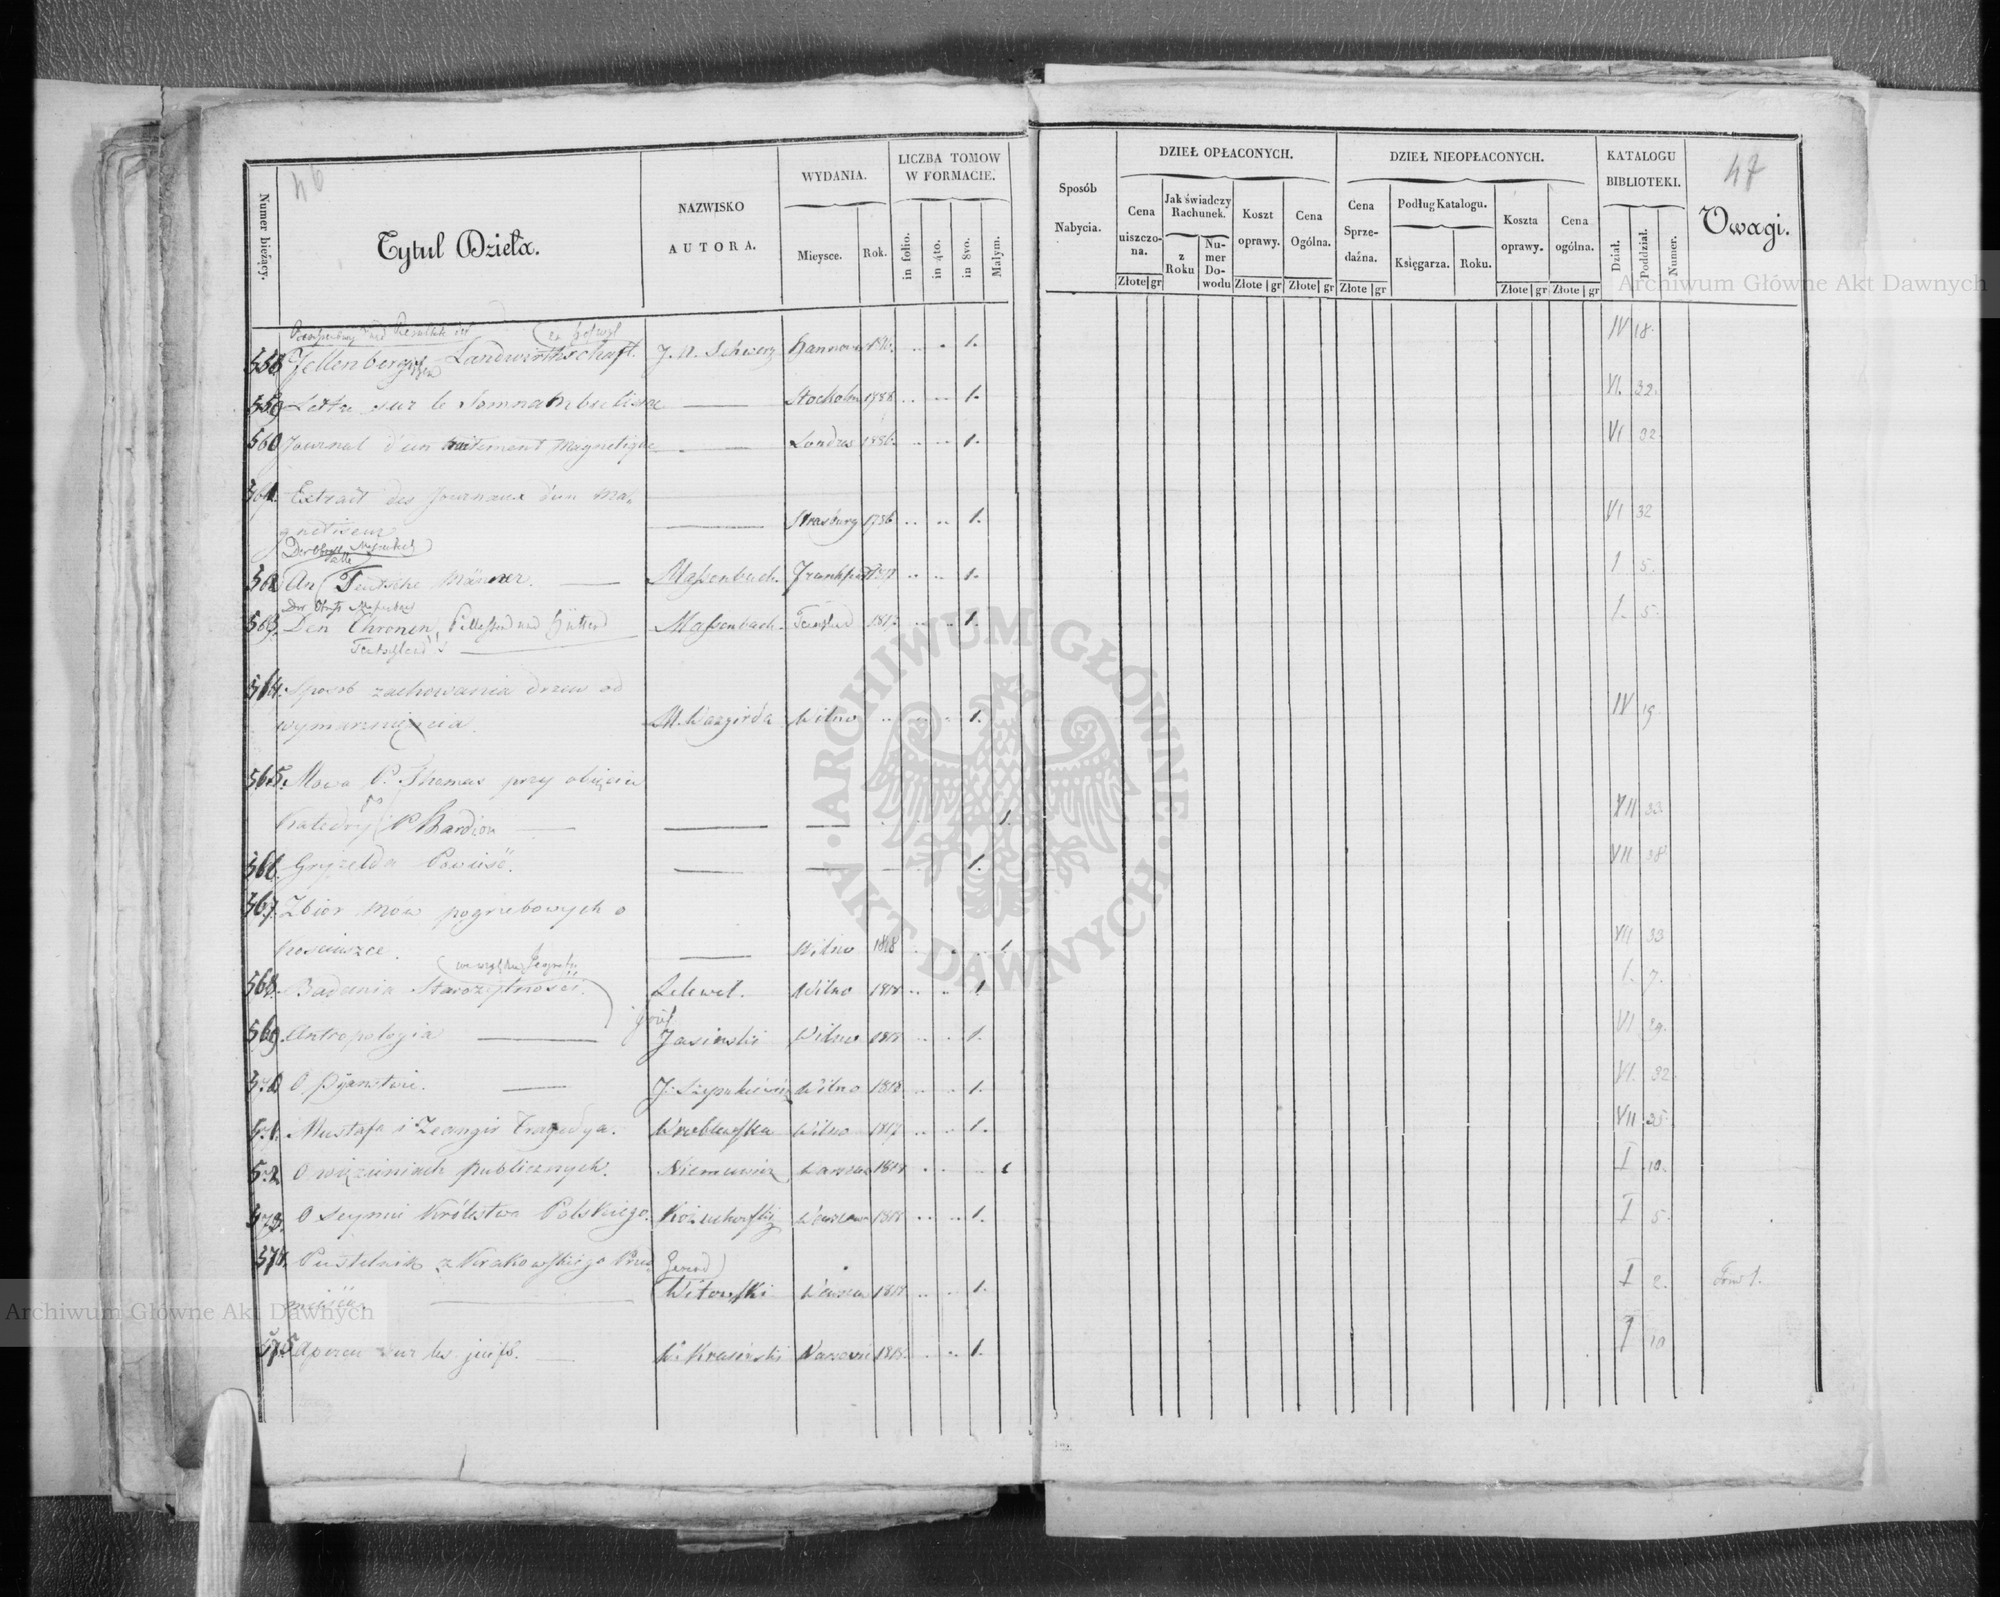 46
Numer bieżący.
Tytuł Dzieła.
NAZWISKO
AUTORA.
WYDANIA.
Mieysce.
Rok.
LICZBA TOMOW
W FORMACIE.
in folio.
in 4to.
in 8vo.
Małym.
558 Fellenberg Landwirthschaft. J. N. Schwerz Hannover 1.
559 Lettre sur le Somnambulisme — Stocholm 1788 1.
560 Journal d'un traitement magnetique — Londres 1.
561. Extrait des Journaux d'un Ma-
gnetiseur — Strasburg 1786 1.
562 An Teutsche Männer. — Massenbach. 1.
563. Den Thronen, Massenbach. 1817 1.
564. Sposob zachowania drzew od
wymarznięcia. Wilno 1.
565. Mowa P. Thomas przy obięciu
Katedry po P. Hardion — — — 1.
566. Gryzelda Powieść. — — 1.
567. Zbior mów pogrzebowych o
Kosciuszce. — Wilno 1818 1.
568. Badania Starożytności Lelewel. Wilno 1818 1
569 Antropologia — Józef Jasiński Wilno 1818 1.
570 O Pijanstwie. — J. Szymkiewicz Wilno 1818 1.
571. Mustafa i Zeangir Tragedya. Wroblewska Wilno 1817 1.
572. O więzieniach publicznych. Niemcewicz Warszaw 1818 1
573. O Seymie Królestwa Polskiego. Kożuchowski Warszaw 1818 1.
574. Pustelnik z Krakowskiego Przed-
mieścia. — Gerard Witowski Warszaw 1818 1.
575 Aperçu sur les juifs. — W. Krasiński Varsovie 1818. 1.
47
Sposób
Nabycia.
DZIEŁ OPŁACONYCH.
Cena
uiszczo-
na.
Jak świadczy
Rachunek.
z
Roku
Nu-
mer
Do-
wodu
Koszt
oprawy.
Cena
Ogólna.
Złote gr
Złote gr
Złote gr
DZIEŁ NIEOPŁACONYCH.
Cena
Sprze-
daźna.
Podług Katalogu.
Księgarza.
Roku.
Koszta
oprawy.
Cena
ogólna.
Złote gr
Złote gr
Złote gr
KATALOGU
BIBLIOTEKI.
Dział.
Poddział.
Numer.
Uwagi.
IV 18.
VI. 32.
VI 32
VI 32
I 5.
I. 5.
IV 19.
VII 33
VII 38
VII 33
I. 7.
VI 29.
VI. 32.
VII 35
I 10.
I 5.
I 2. Tom 1.
I 10
Archiwum Główne Akt Dawnych
Archiwum Główne Akt Dawnych
ARCHIWUM GŁÓWNE AKT DAWNYCH